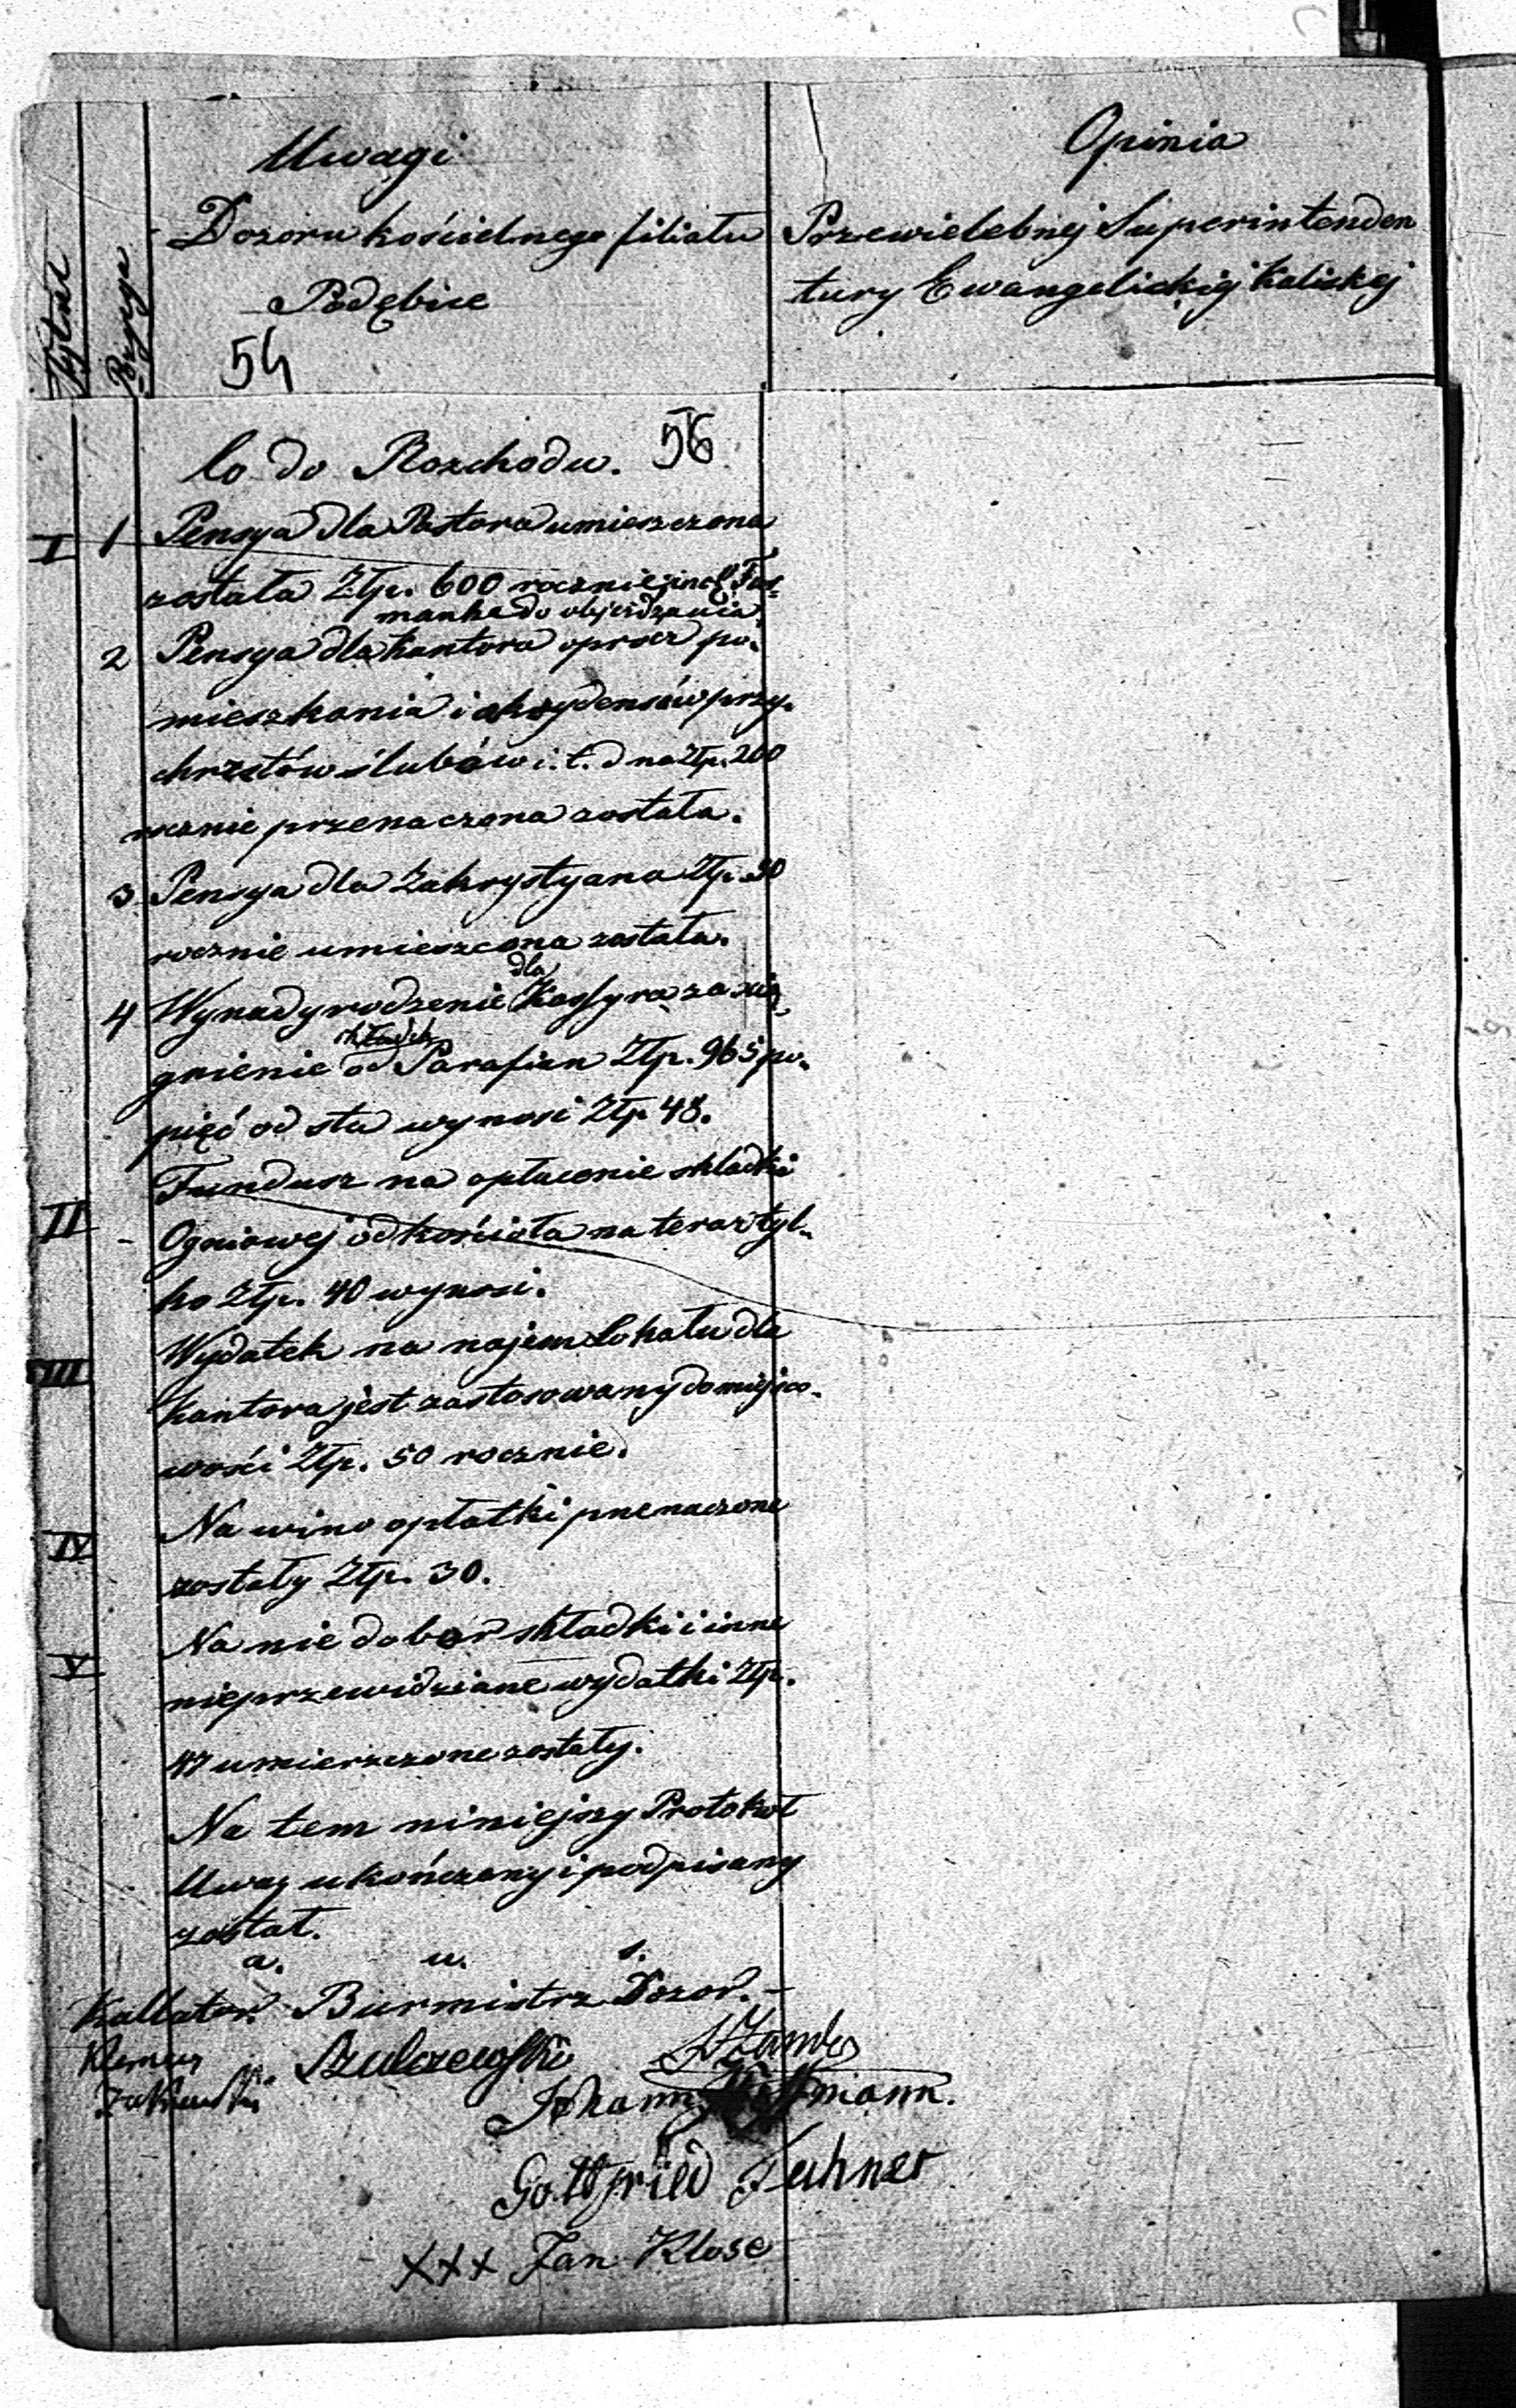 Tytuł
Pozycya
Uwagi
Dozoru kościelnego filiału
Podębice
54
Opinia
Przewielebnej Superintenden
tury Ewangelickiej Kaliskej
Co do Rozchodu. 56
I 1 Pensya dla Pastora umieszczona
została Ztp. 600 rocznie incl. Fur=
manke do objeżdzania.
2 Pensya dla Kantora oprócz po„
mieszkania i akcydensów przy„
chrzstów ślubów i. t. d na Ztp. 200
rocznie przenaczona została.
3 Pensya dla Zakrystyana Ztp. 30
rocznie umieszcona została.
dla
4 Wynadgrodzenie Kassyra za scią
składek
gnienie od Parafian Ztp. 965 po„
pięć od sta wynosi Ztp 48.
II - Fundusz na opłacenie składki
Ogniowej od kościoła na teraz tyl„
ko Ztp. 40 wynosi.
III Wydatek na najem Lokalu dla
Kantora jest zastosowany do miejsco„
wości Ztp. 50 rocznie.
IV Na wino opłatki przenaczone
zostały Ztp. 30.
V Na nie dobor składki i inne
nieprzewidziane wydatki Ztp.
47 umierzczone zostały.
Na tem niniejszy Protokoł
Uwag ukończony i podpisany
został.
a. u. s.
Kollator. Burmistrz Dozor. -
Szulczewski
Johann
Gottfried Fuhner
xxx Jan Klose